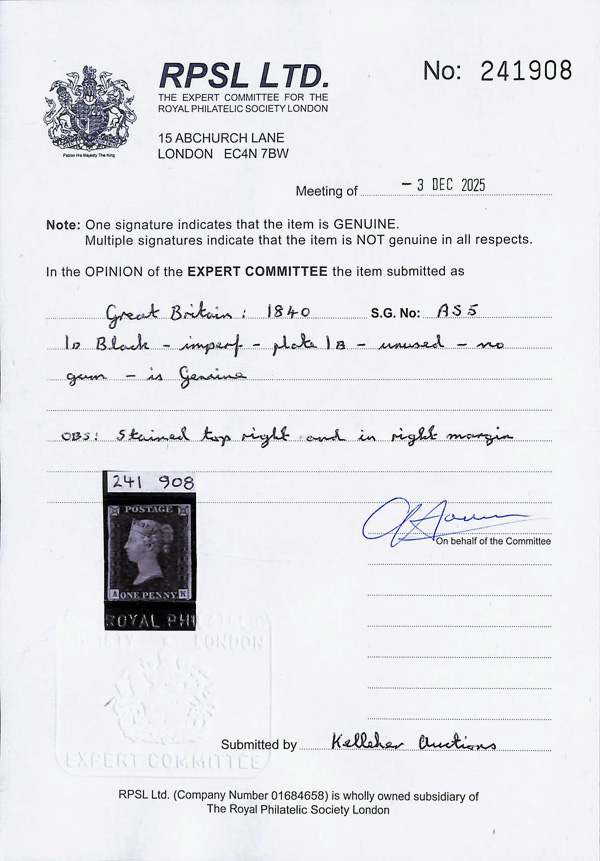 RPSL LTD.
THE EXPERT COMMITTEE FOR THE
ROYAL PHILATELIC SOCIETY LONDON
No: 241908
Patron His Majesty The King
15 ABCHURCH LANE
LONDON EC4N 7BW
Meeting of - 3 DEC 2025
Note: One signature indicates that the item is GENUINE.
Multiple signatures indicate that the item is NOT genuine in all respects.
In the OPINION of the EXPERT COMMITTEE the item submitted as
Great Britain: 1840 S.G. No: AS5
1D Black - imperf - plate 1B - unused - no
gum - is Genuine
OBS: Stained top right and in right margin
241 908
POSTAGE
A ONE PENNY K
ROYAL PHI
On behalf of the Committee
SOCIETY LONDON
EXPERT COMMITTEE
Submitted by Kelleher Auctions
RPSL Ltd. (Company Number 01684658) is wholly owned subsidiary of
The Royal Philatelic Society London